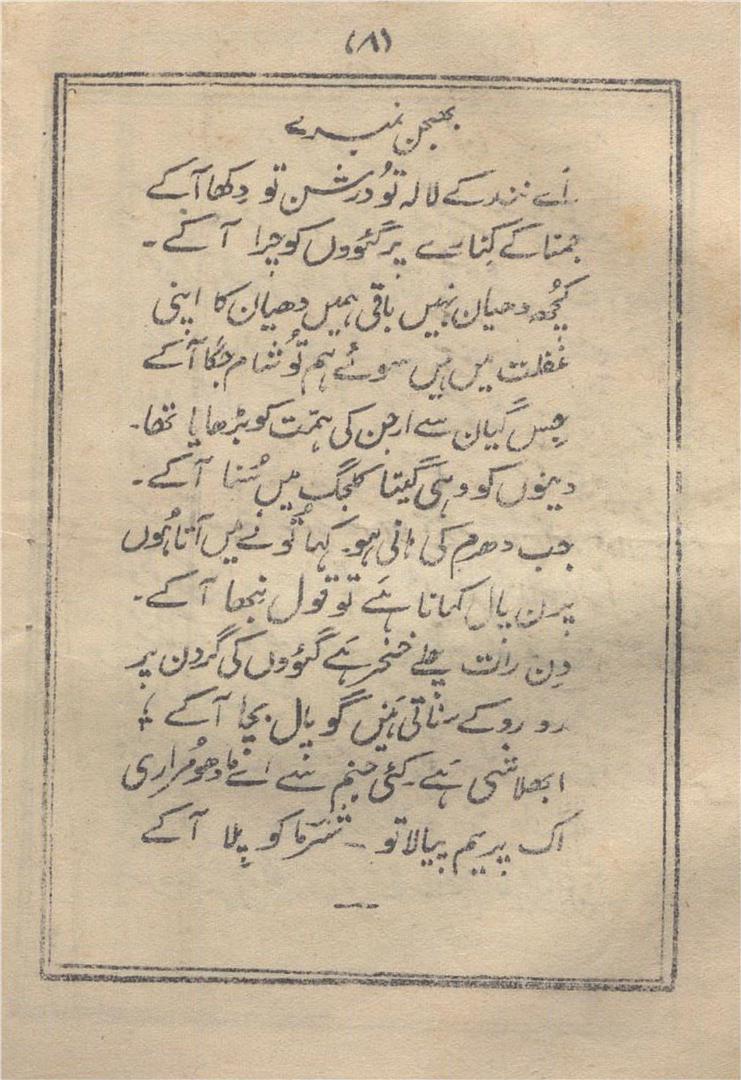 (۸)
بھجن نمبر ۷
اَے نند کے لالہ تُو درشن تو دِکھا آکے
جمنا کے کِنارے پر گئووں کو چرا آکے ۔
کُچھ دھیان نہیں باقی ہمیں دھیان کا اپنی
غفلت میں ہیں سوئے ہم تُو شام جگا آکے
جِس گیان سے ارجن کی ہمّت کو بڑھایا تھا۔
دینوں کو وہی گیتا کلجگ میں سُنا آکے ۔
جب دھرم کی ہانی ہو۔ کہا تُو نے میں آتا ہُوں
پرن پال کہاتا ہَے تو قول نِبھا آکے ۔
دِن رات چلے خنجر ہَے گئووں کی گردن پر
رو رو کے سناتی ہَیں گوپال بچا آکے
ابھلاشی ہَے ۔ کئی جنم سے اَے مادھو مُراری
اک پریم پیالا تو ۔ شرما کو پِلا آکے